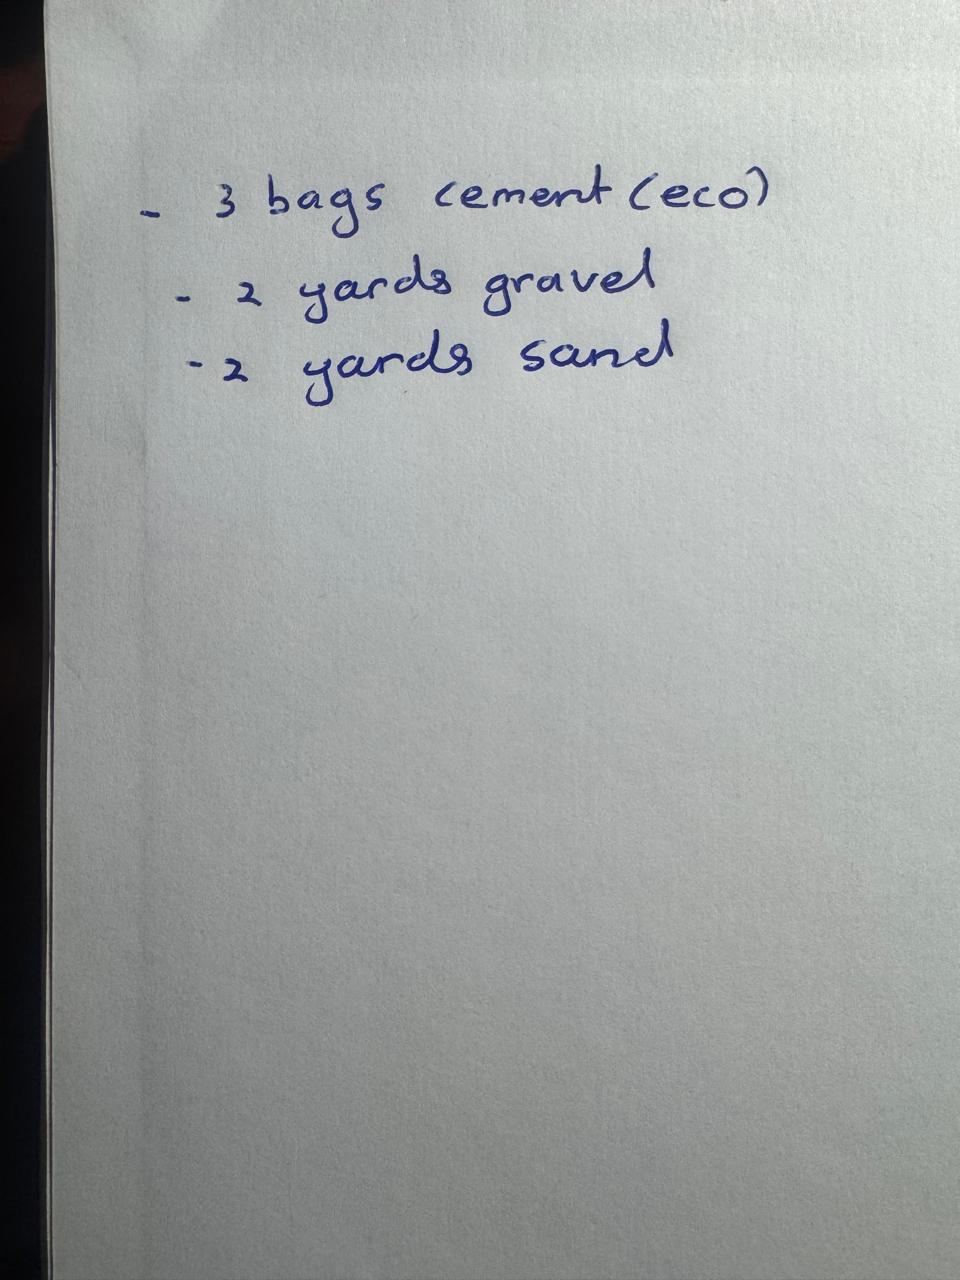 - 3 bags cement (eco)
- 2 yards gravel
- 2 yards sand